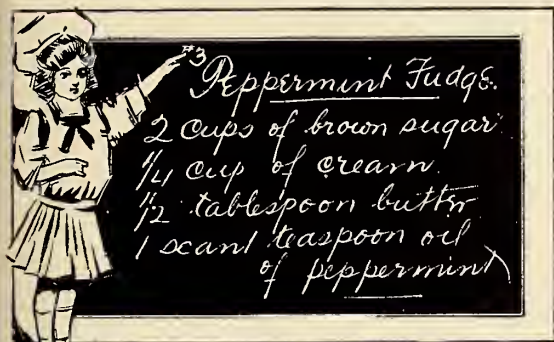 #3
Peppermint Fudge.
2 cups of brown sugar
1/4 cup of cream.
1/2 tablespoon butter
1 scant teaspoon oil
of peppermint